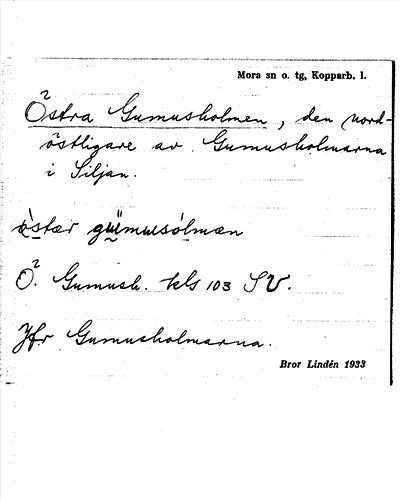 Mora sn o. tg, Kopparb. l.
Östra Gumusholmen, den nord-
östligare av Gumusholmarna
i Siljan.
ò̀stær gǜmusólmæn
Ö. Gumush. kls 103 SV.
Jfr Gumusholmarna.
Bror Lindén 1933